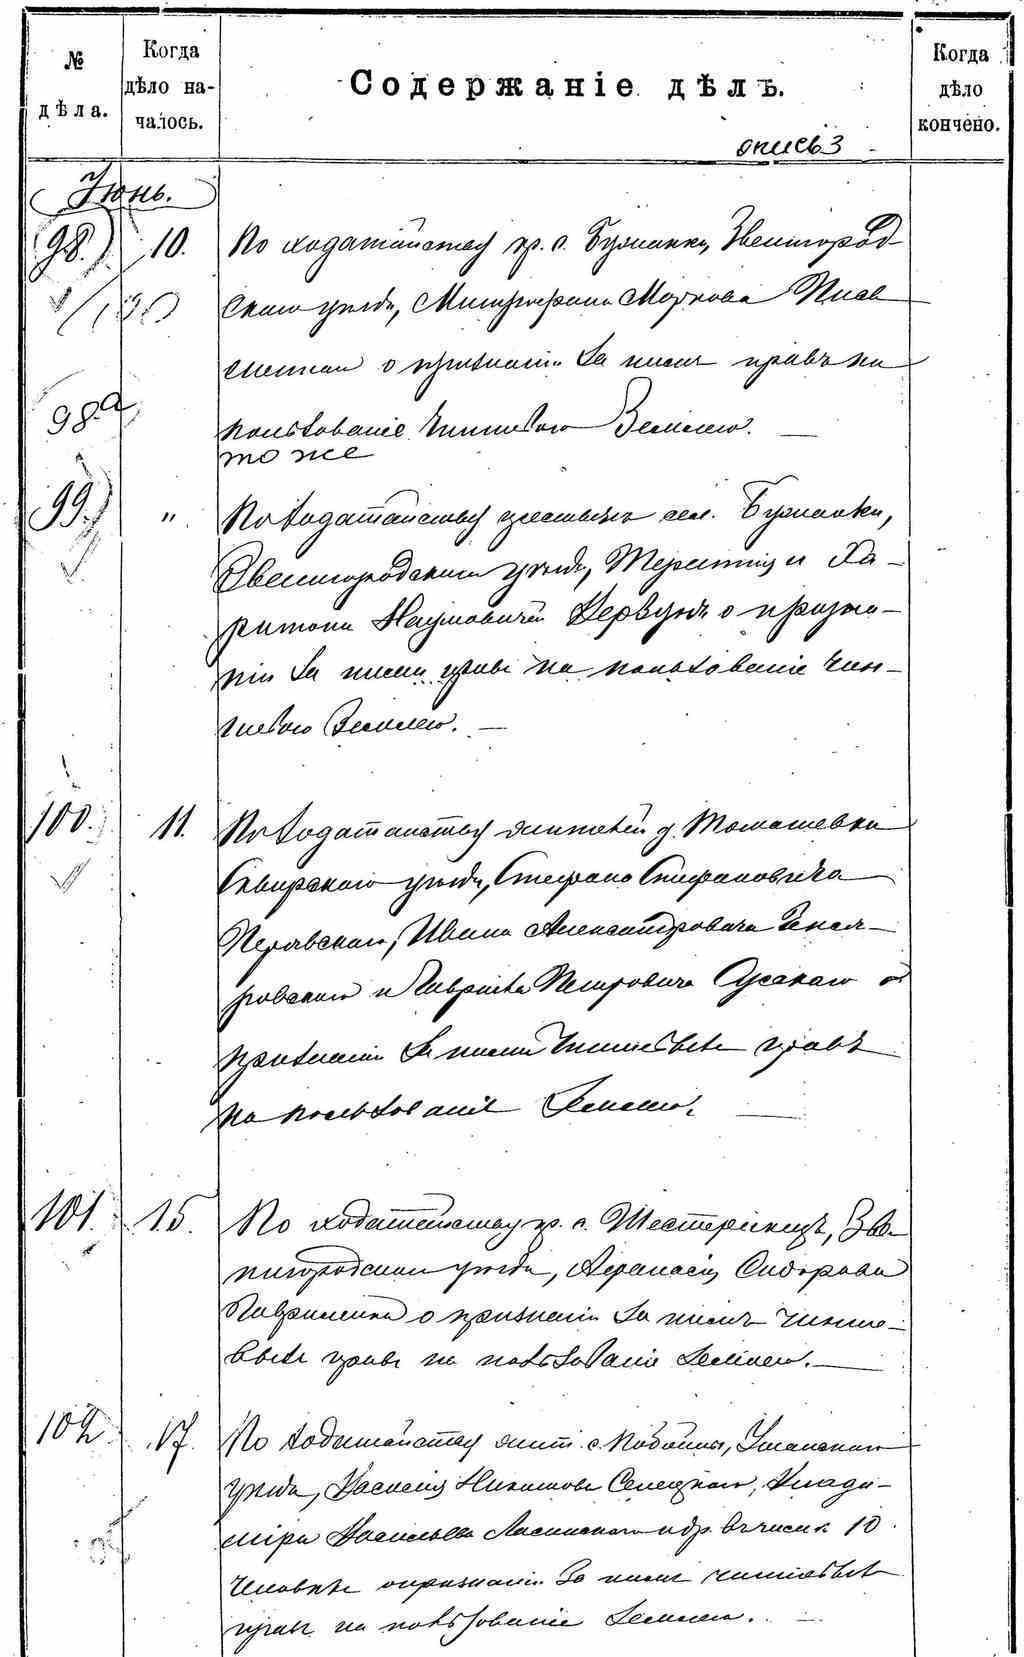 № дѣла.
Когда дѣло началось.
Содержаніе дѣлъ.
Когда дѣло кончено.
опись 3
Іюнь.
98. 10. По ходатайству кр. с. Бужанки, Звенигород-
скаго уѣзда, Митрофана Маркова
о признаніи за нимъ правъ на
98а
пользованіе чиншевою землею. —
то же
99. " По ходатайству крестьянъ сел. Бужанки,
Звенигородскаго уѣзда, Терентія и Ха-
ритона Наумовичей о призна-
ніи за ними правъ на пользованіе чин-
шевою землею. —
100. 11. По ходатайству жителей д. Томашевки
Сквирскаго уѣзда, Стефана Стефановича
Ивана Александровича
и Гавриила Петровича о
признаніи за ними чиншевыхъ правъ
на пользованіе землею. —
101. 15. По ходатайству кр. с. Шестеринецъ, Зве-
нигородскаго уѣзда, Афанасія Сидорова
Гавриленка о признаніи за нимъ чинше-
выхъ правъ на пользованіе землею. —
102. 17. По ходатайству жит. с. Уманскаго
уѣзда, Василія Никитова Влади-
міра Васильева и др. въ числѣ 10
человѣкъ о признаніи за ними чиншевыхъ
правъ на пользованіе землею. —